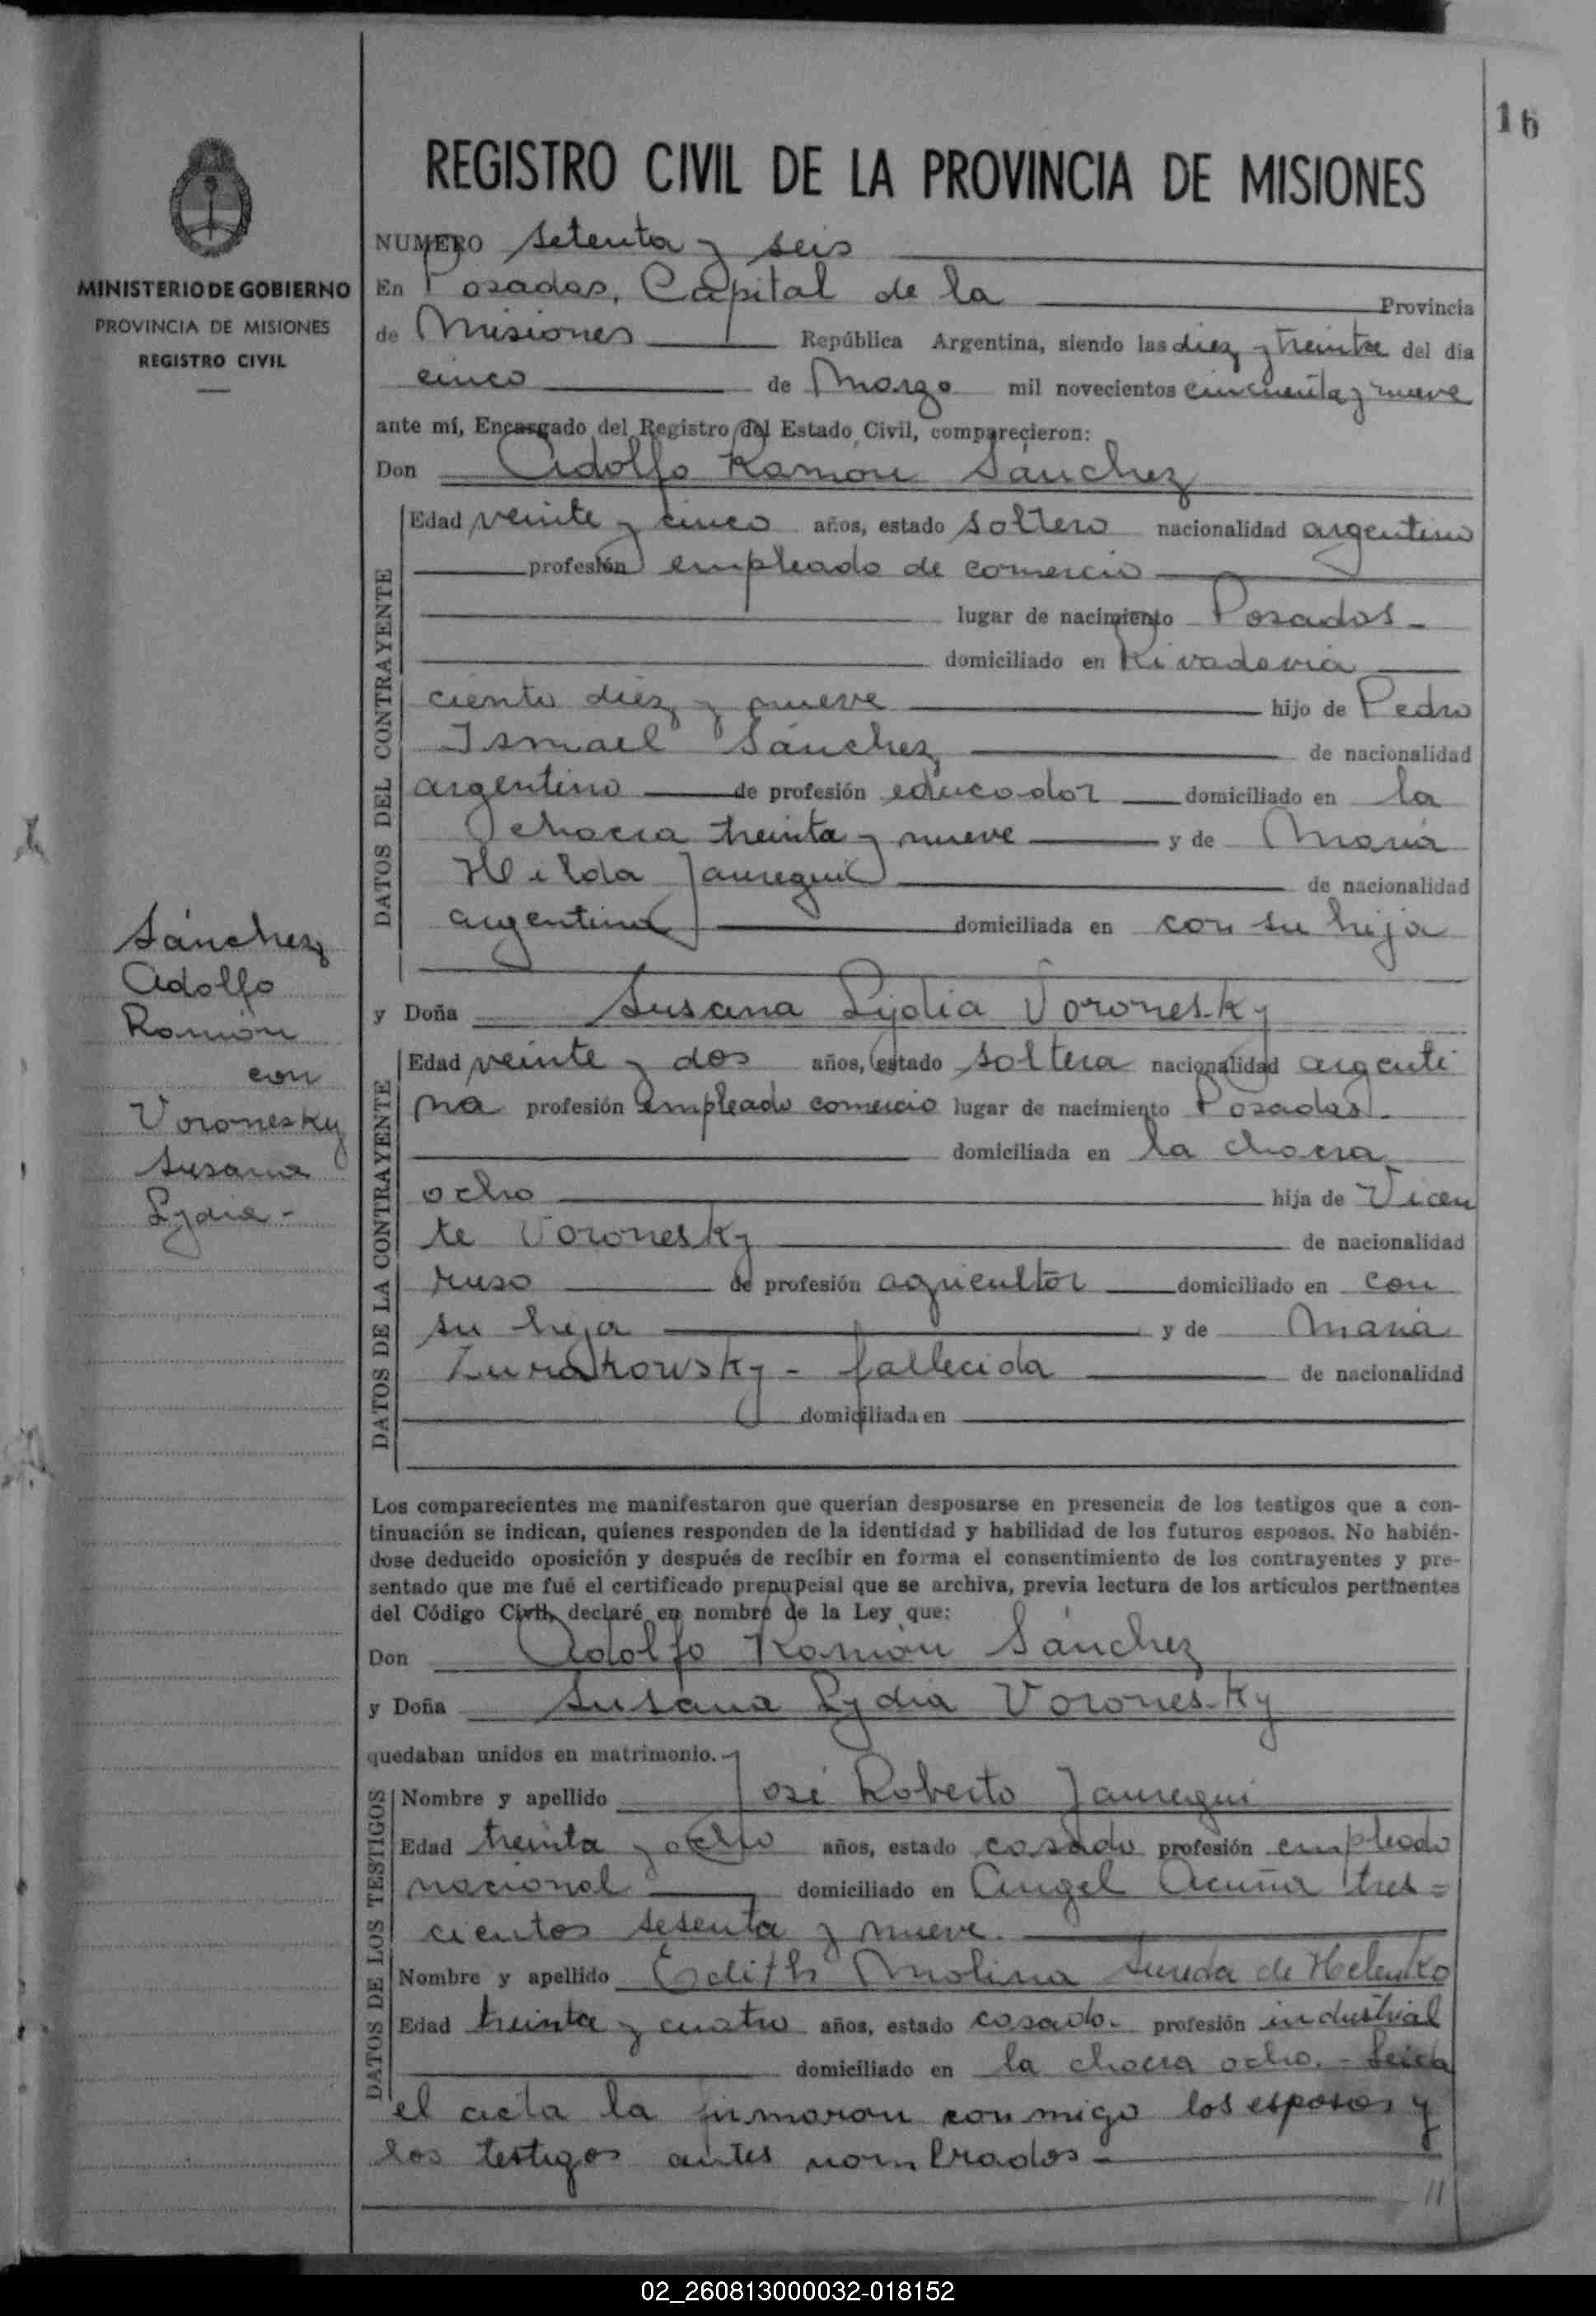 16
REGISTRO CIVIL DE LA PROVINCIA DE MISIONES
MINISTERIO DE GOBIERNO
PROVINCIA DE MISIONES
REGISTRO CIVIL
NUMERO setenta y seis
En Posadas, Capital de la Provincia
de Misiones República Argentina, siendo las diez y treinta del día
cinco de Marzo mil novecientos cincuenta y nueve
ante mí, Encargado del Registro del Estado Civil, comparecieron:
Don Adolfo Ramón Sánchez
DATOS DEL CONTRAYENTE
Edad veinte y cinco años, estado soltero nacionalidad argentino
profesión empleado de comercio
lugar de nacimiento Posadas -
domiciliado en Rivadavia
ciento diez y nueve hijo de Pedro
Ismael Sánchez de nacionalidad
argentino de profesión educador domiciliado en la
chacra treinta y nueve y de María
Hilda Jauregui de nacionalidad
argentina domiciliada en con su hijo
Sánchez
Adolfo
Ramón
con
Voronesky
Susana
Lydia -
y Doña Susana Lydia Voronesky
DATOS DE LA CONTRAYENTE
Edad veinte y dos años, estado soltera nacionalidad argenti
na profesión empleado comercio lugar de nacimiento Posadas -
domiciliada en la chacra
ocho hija de Vicen
te Voronesky de nacionalidad
ruso de profesión agricultor domiciliado en con
su hija y de María
Zurakowsky - fallecida de nacionalidad
domiciliada en
Los comparecientes me manifestaron que querían desposarse en presencia de los testigos que a con-
tinuación se indican, quienes responden de la identidad y habilidad de los futuros esposos. No habién-
dose deducido oposición y después de recibir en forma el consentimiento de los contrayentes y pre-
sentado que me fué el certificado prenupcial que se archiva, previa lectura de los artículos pertinentes
del Código Civil, declaré en nombre de la Ley que:
Don Adolfo Ramón Sánchez
y Doña Susana Lydia Voronesky
quedaban unidos en matrimonio.-
DATOS DE LOS TESTIGOS
Nombre y apellido José Roberto Jauregui
Edad treinta y ocho años, estado casado profesión empleado
nacional domiciliado en Angel Acuña tres=
cientos sesenta y nueve.
Nombre y apellido Edith Molina de
Edad treinta y cuatro años, estado casado. profesión industrial
domiciliado en la chacra ocho. - Leida
el acta la firmaron conmigo los esposos y
los testigos antes nombrados -
02_260813000032-018152